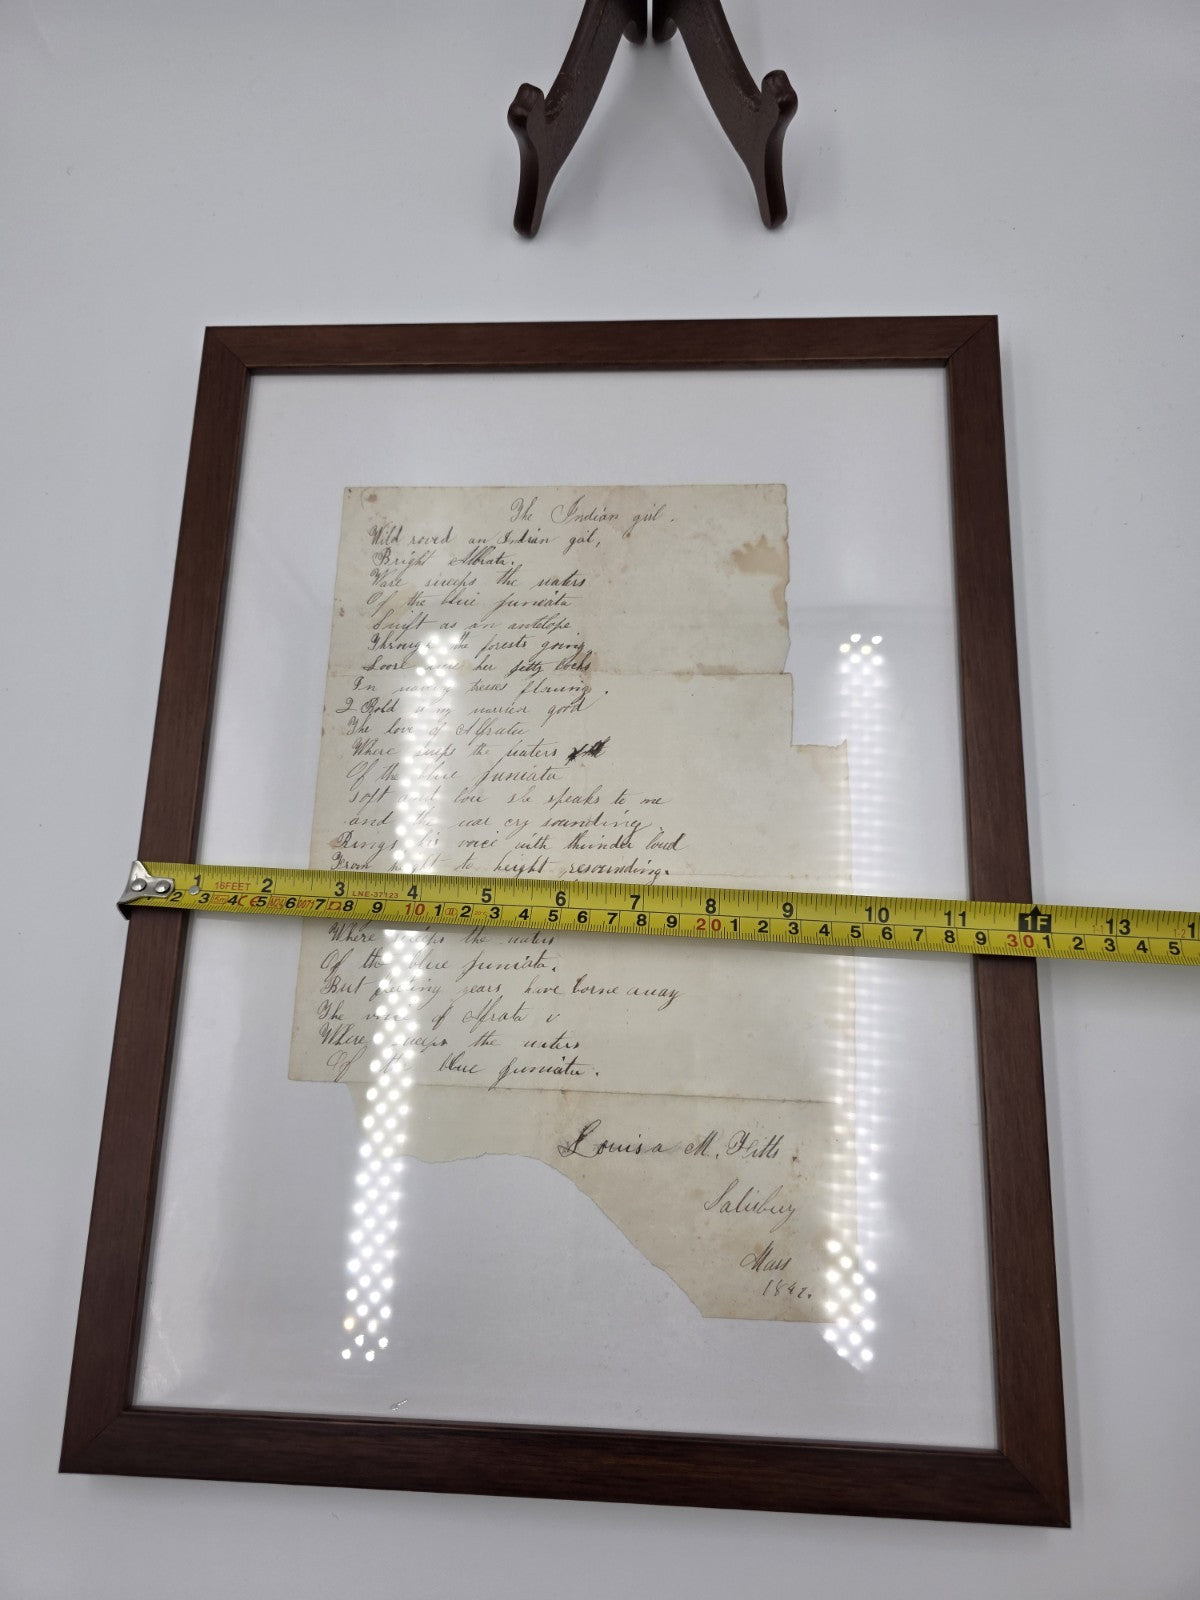 The Indian girl.
Wild roved an Indian girl,
Bright Alfrata.
Ware sweeps the waters
Of the blue Juniata
Swift as an antelope
Through the forests going
Loose were her jetty locks
In wavey tresses flowing.
2 Bold is my warrior good
The love of Alfrata
Where sweeps the waters
Of the blue Juniata
Soft and low she speaks to me
and the war cry sounding
Rings his voice with thunder loud
From height to height resounding.
1 16FEET 2 3 LNE-37123 4 5 6 7 8 9 10 11 1F 13
2 3 4 5 6 7 8 9 10 1 2 3 4 5 6 7 8 9 20 1 2 3 4 5 6 7 8 9 30 1 2 3 4 5
Where sweeps the waters
Of the blue Juniata.
But fleeting years have borne away
The voice of Alfrata
Where sweeps the waters
Of the blue Juniata.
Louisa M. Flitts
Salisbury
Mass